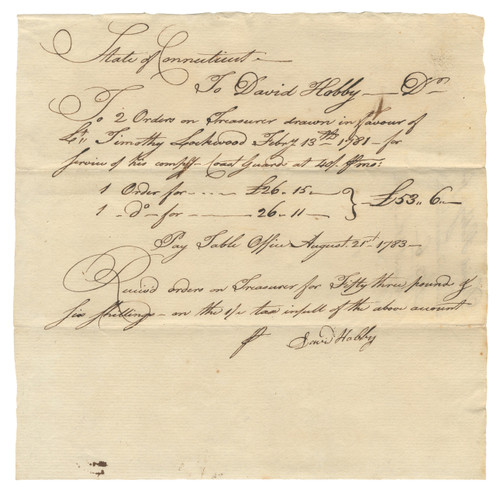 State of Connecticut
To David Hobby — Dr
To 2 Orders on Treasurer drawn in favour of
Lt. Timothy Lockwood Febry 13th 1781 — for
service of his compy Coast Guard at 40/ pmo:
1 Order for — £26..15 —
1 - do — for — 26..11 — } £53..6 —
Pay Table Office August 21st 1783 —
Receivd orders on Treasurer for Fifty three pound &
six shillings — on the tax in full of the above account
David Hobby